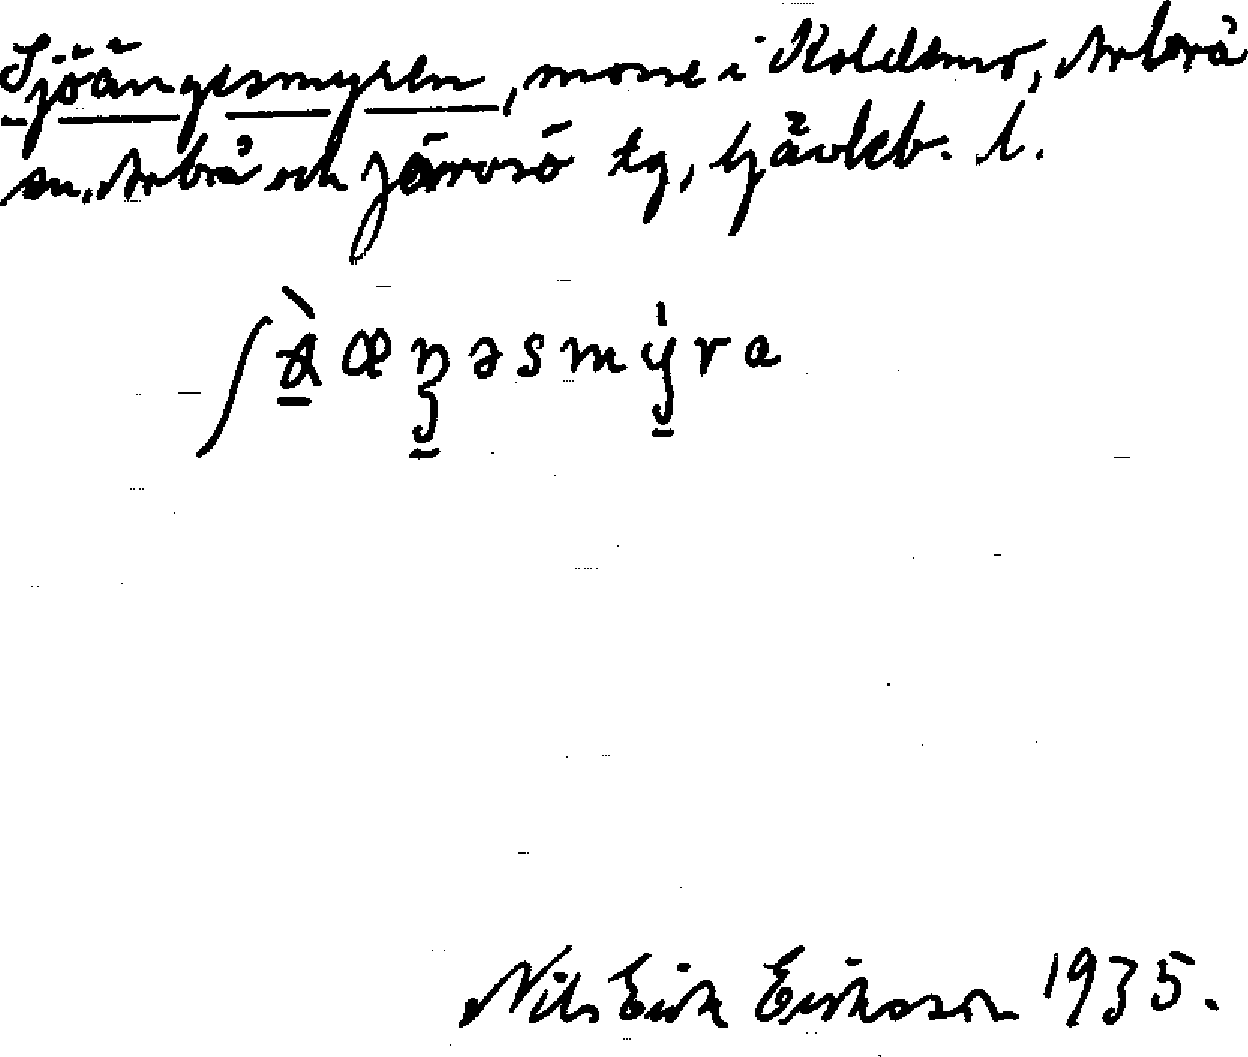 Sjöängesmyren, mosse i Koldemo, Arbrå
sn, Arbrå och Järvsö tg, Gävleb. l.
Nils Erik Eriksson 1935.